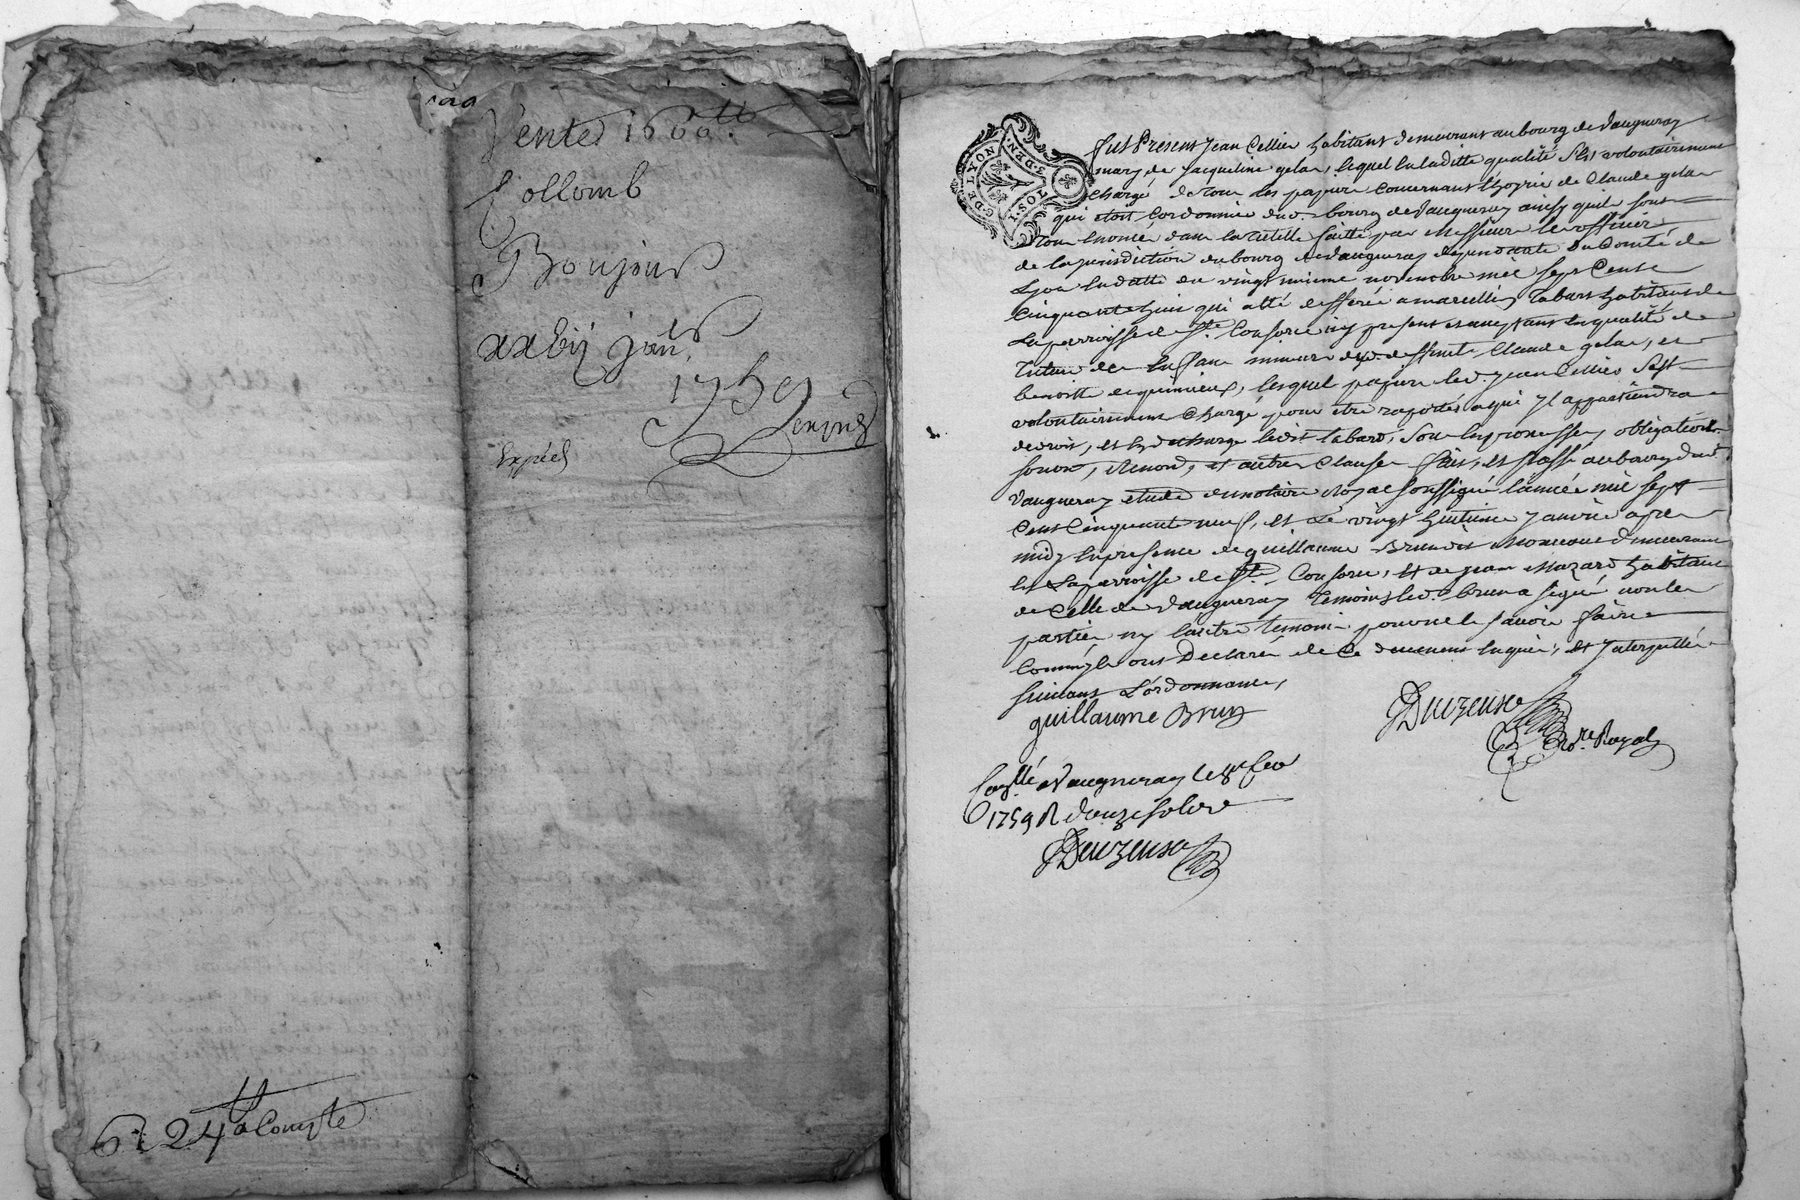 Vente 1600 ₶
Collomb
Bonjour
xxvij janr
1759
Expéd
R 24 ₶ a Compte
G. DE LYON
3. DEN.
1. SOL
fut Present Jean Cellier habitant demeurant au bourg de vaugneray
mary de Jacqueline gelas, lequel en laditte qualité s'est volontairement
chargé de tous les papiers concernant l'hoyrie de Claude gelas
qui etoit Cordonnier dud. bourg de vaugneray ainsy quils sont
tous enoncé dans la tutelle faitte par Messieurs les officiers
de la jurisdiction du bourg de vaugneray dependante du Comté de
Lyon en datte du vingt unieme novembre mil sept Cents
Cinquante huit qui a été defferée a marcellin tabard habitant de
La parroisse de Ste Consorce icy present et acceptant en qualité de
tuteur des Enfans mineurs dud. deffunt Claude gelas, et
benoitte dequinieux, lesquels papiers led. Jean Cellier s'est
volontairement Chargé pour etre raportés a qui Il appartiendra
de droit, et En decharge ledit tabard, Sous les promesses, obligations
renon, et autres Clauses fait, et passé au bourg dud.
vaugneray etude du notaire Royal soussigné l'année mil sept
Cent Cinquante neuf, et Le vingt huitieme Janvier apres
midy En presence de guillaume Brun demeurant
En La parroisse de Ste Consorce, et de jean Mazard habitant
de Celle de vaugneray temoins led. brun a signé non les
parties ny l'autre temoin pour ne le savoir faire
Comme Ils ont Declaré de Ce deuement Enquis, et Interpellé
suivant L'ordonnance,
guillaume Brun
Deuzeuse
Nore Royal
Conllé a Vaugneray le 8e fev
1759 R douze sols
Deuzeuse